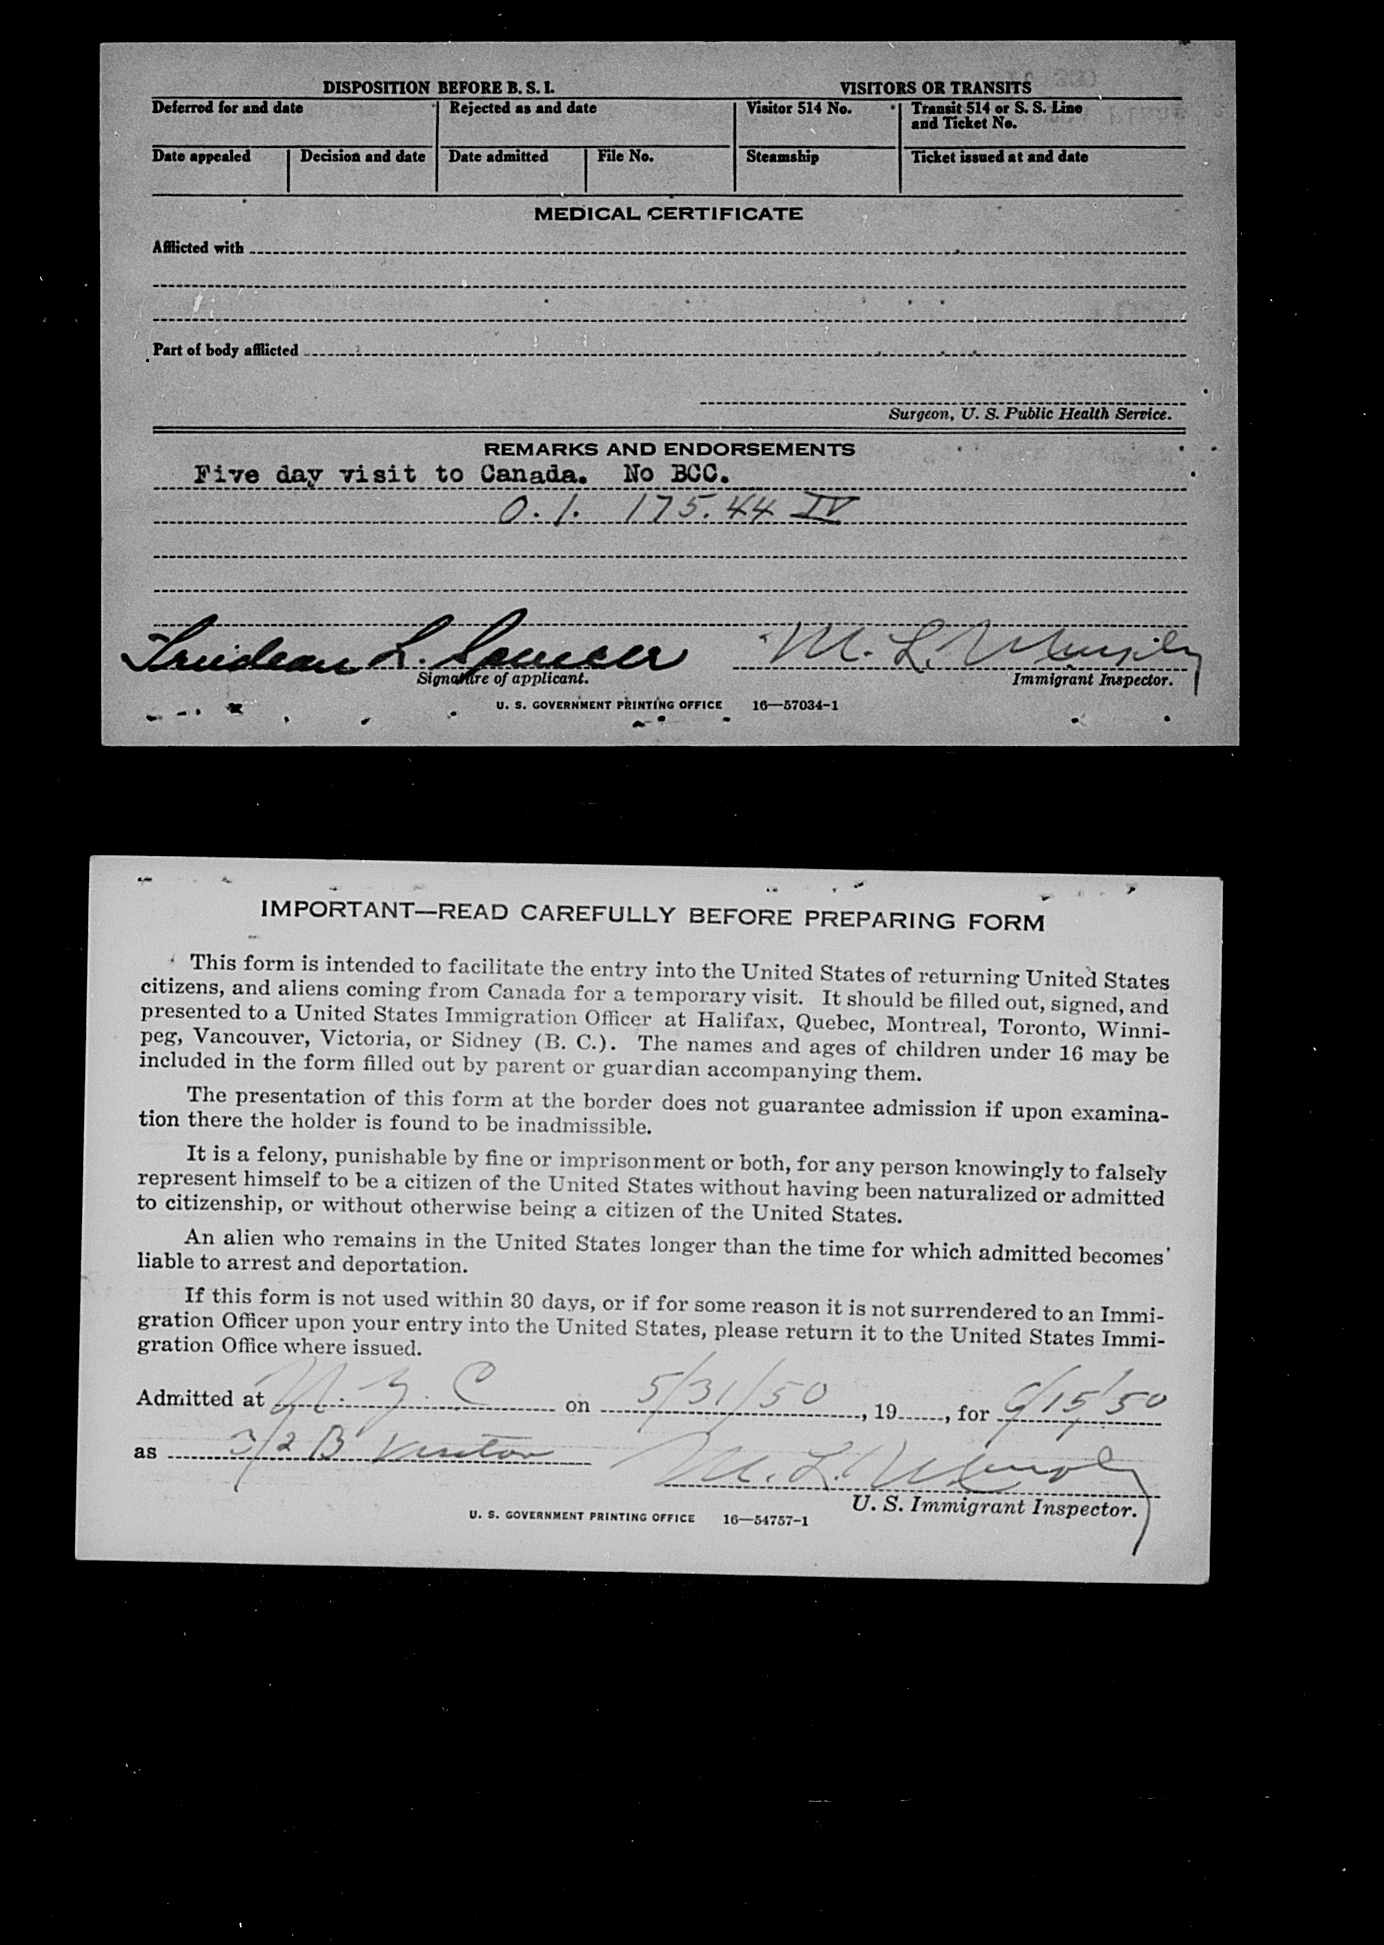 DISPOSITION BEFORE B. S. I.
VISITORS OR TRANSITS
Deferred for and date
Rejected as and date
Visitor 514 No.
Transit 514 or S. S. Line
and Ticket No.
Date appealed
Decision and date
Date admitted
File No.
Steamship
Ticket issued at and date
MEDICAL CERTIFICATE
Afflicted with
Part of body afflicted
Surgeon, U. S. Public Health Service.
REMARKS AND ENDORSEMENTS
Five day visit to Canada. No BCC.
O. I. 175.44 IV
Trudeau L. Spencer
M. L.
Signature of applicant.
Immigrant Inspector.
U. S. GOVERNMENT PRINTING OFFICE 16—57034-1
IMPORTANT—READ CAREFULLY BEFORE PREPARING FORM
This form is intended to facilitate the entry into the United States of returning United States
citizens, and aliens coming from Canada for a temporary visit. It should be filled out, signed, and
presented to a United States Immigration Officer at Halifax, Quebec, Montreal, Toronto, Winni-
peg, Vancouver, Victoria, or Sidney (B. C.). The names and ages of children under 16 may be
included in the form filled out by parent or guardian accompanying them.
The presentation of this form at the border does not guarantee admission if upon examina-
tion there the holder is found to be inadmissible.
It is a felony, punishable by fine or imprisonment or both, for any person knowingly to falsely
represent himself to be a citizen of the United States without having been naturalized or admitted
to citizenship, or without otherwise being a citizen of the United States.
An alien who remains in the United States longer than the time for which admitted becomes
liable to arrest and deportation.
If this form is not used within 30 days, or if for some reason it is not surrendered to an Immi-
gration Officer upon your entry into the United States, please return it to the United States Immi-
gration Office where issued.
Admitted at N. Y. C on 5/31/50, 19, for 6/15/50
as 3/2 B Visitor M. L.
U. S. Immigrant Inspector.
U. S. GOVERNMENT PRINTING OFFICE 16—54757-1